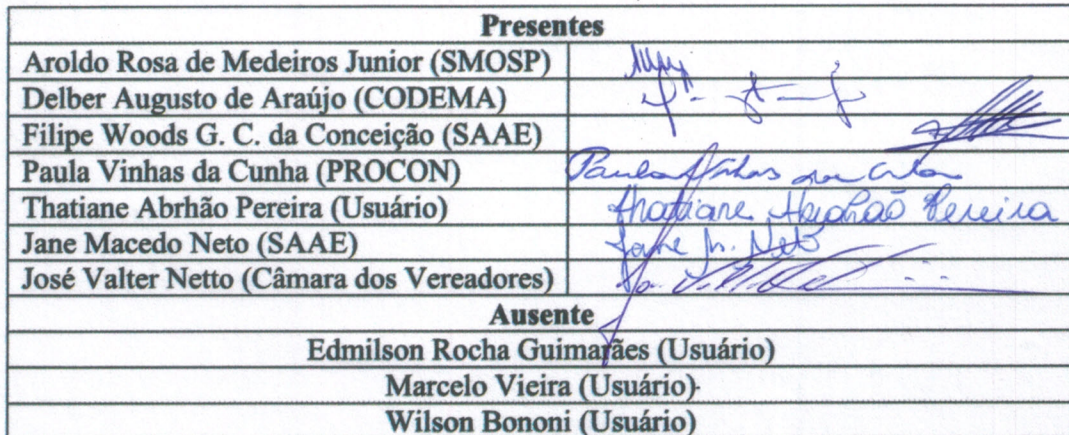 Presentes
Aroldo Rosa de Medeiros Junior (SMOSP)
Delber Augusto de Araújo (CODEMA)
Filipe Woods G. C. da Conceição (SAAE)
Paula Vinhas da Cunha (PROCON) Paula Vinhas da Cunha
Thatiane Abrhão Pereira (Usuário) Thatiane Abrahão Pereira
Jane Macedo Neto (SAAE) Jane M. Neto
José Valter Netto (Câmara dos Vereadores)
Ausente
Edmilson Rocha Guimarães (Usuário)
Marcelo Vieira (Usuário)
Wilson Bononi (Usuário)